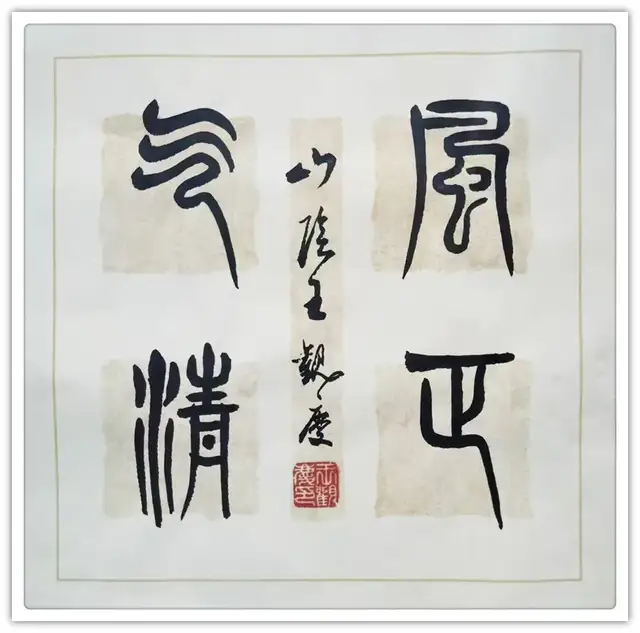 風正
气清
山陰王觀慶
王觀慶印